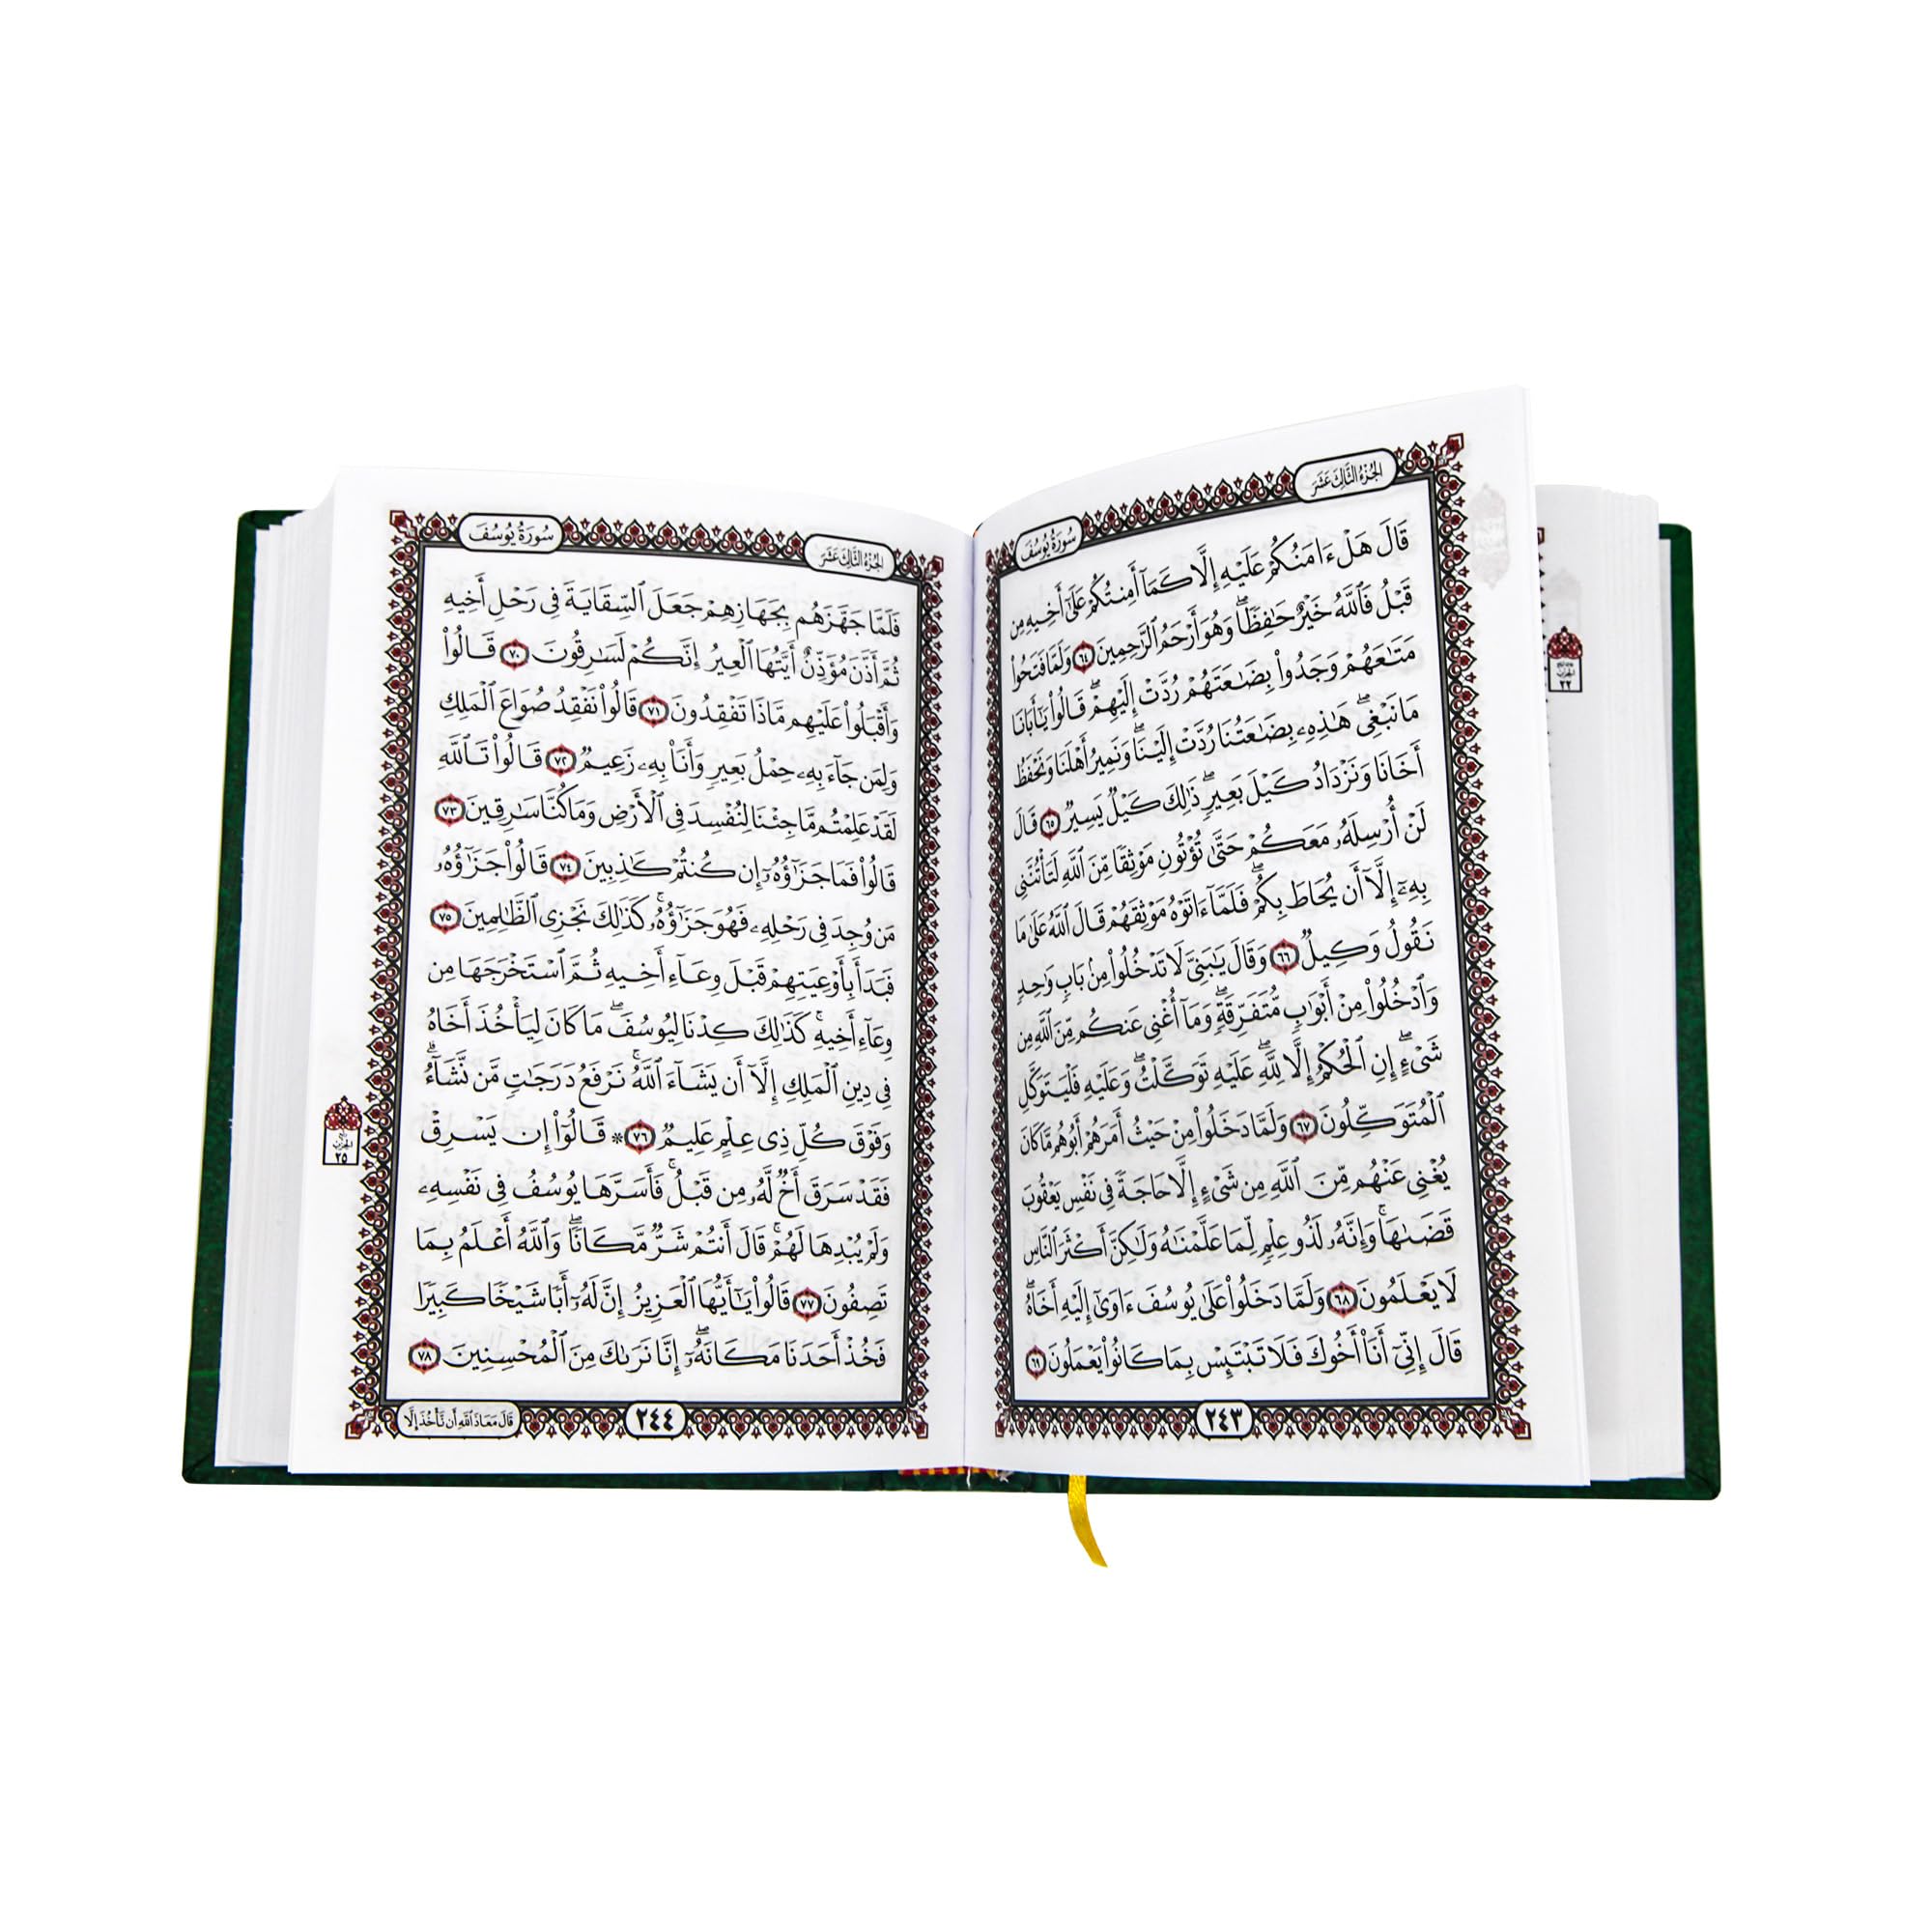 الجزء الثالث عشر
سورة يوسف
قَالَ هَلْ ءَامَنُكُمْ عَلَيْهِ إِلَّا كَمَآ أَمِنتُكُمْ عَلَىٰٓ أَخِيهِ مِن
قَبْلُ فَٱللَّهُ خَيْرٌ حَٰفِظًاۖ وَهُوَ أَرْحَمُ ٱلرَّٰحِمِينَ ٦٤ وَلَمَّا فَتَحُوا۟
مَتَٰعَهُمْ وَجَدُوا۟ بِضَٰعَتَهُمْ رُدَّتْ إِلَيْهِمْۖ قَالُوا۟ يَٰٓأَبَانَا
مَا نَبْغِىۖ هَٰذِهِۦ بِضَٰعَتُنَا رُدَّتْ إِلَيْنَاۖ وَنَمِيرُ أَهْلَنَا وَنَحْفَظُ
أَخَانَا وَنَزْدَادُ كَيْلَ بَعِيرٍۖ ذَٰلِكَ كَيْلٌ يَسِيرٌ ٦٥ قَالَ
لَنْ أُرْسِلَهُۥ مَعَكُمْ حَتَّىٰ تُؤْتُونِ مَوْثِقًا مِّنَ ٱللَّهِ لَتَأْتُنَّنِى
بِهِۦٓ إِلَّآ أَن يُحَاطَ بِكُمْۖ فَلَمَّآ ءَاتَوْهُ مَوْثِقَهُمْ قَالَ ٱللَّهُ عَلَىٰ مَا
نَقُولُ وَكِيلٌ ٦٦ وَقَالَ يَٰبَنِىَّ لَا تَدْخُلُوا۟ مِنۢ بَابٍ وَٰحِدٍ
وَٱدْخُلُوا۟ مِنْ أَبْوَٰبٍ مُّتَفَرِّقَةٍۖ وَمَآ أُغْنِى عَنكُم مِّنَ ٱللَّهِ مِن
شَىْءٍۖ إِنِ ٱلْحُكْمُ إِلَّا لِلَّهِۖ عَلَيْهِ تَوَكَّلْتُۖ وَعَلَيْهِ فَلْيَتَوَكَّلِ
ٱلْمُتَوَكِّلُونَ ٦٧ وَلَمَّا دَخَلُوا۟ مِنْ حَيْثُ أَمَرَهُمْ أَبُوهُم مَّا كَانَ
يُغْنِى عَنْهُم مِّنَ ٱللَّهِ مِن شَىْءٍ إِلَّا حَاجَةً فِى نَفْسِ يَعْقُوبَ
قَضَىٰهَاۚ وَإِنَّهُۥ لَذُو عِلْمٍ لِّمَا عَلَّمْنَٰهُ وَلَٰكِنَّ أَكْثَرَ ٱلنَّاسِ
لَا يَعْلَمُونَ ٦٨ وَلَمَّا دَخَلُوا۟ عَلَىٰ يُوسُفَ ءَاوَىٰٓ إِلَيْهِ أَخَاهُۖ
قَالَ إِنِّىٓ أَنَا۠ أَخُوكَ فَلَا تَبْتَئِسْ بِمَا كَانُوا۟ يَعْمَلُونَ ٦٩
٢٤٣
الجزء الثالث عشر
سورة يوسف
فَلَمَّا جَهَّزَهُم بِجَهَازِهِمْ جَعَلَ ٱلسِّقَايَةَ فِى رَحْلِ أَخِيهِ
ثُمَّ أَذَّنَ مُؤَذِّنٌ أَيَّتُهَا ٱلْعِيرُ إِنَّكُمْ لَسَٰرِقُونَ ٧٠ قَالُوا۟
وَأَقْبَلُوا۟ عَلَيْهِم مَّاذَا تَفْقِدُونَ ٧١ قَالُوا۟ نَفْقِدُ صُوَاعَ ٱلْمَلِكِ
وَلِمَن جَآءَ بِهِۦ حِمْلُ بَعِيرٍ وَأَنَا۠ بِهِۦ زَعِيمٌ ٧٢ قَالُوا۟ تَٱللَّهِ
لَقَدْ عَلِمْتُم مَّا جِئْنَا لِنُفْسِدَ فِى ٱلْأَرْضِ وَمَا كُنَّا سَٰرِقِينَ ٧٣
قَالُوا۟ فَمَا جَزَٰٓؤُهُۥٓ إِن كُنتُمْ كَٰذِبِينَ ٧٤ قَالُوا۟ جَزَٰٓؤُهُۥ
مَن وُجِدَ فِى رَحْلِهِۦ فَهُوَ جَزَٰٓؤُهُۥۚ كَذَٰلِكَ نَجْزِى ٱلظَّٰلِمِينَ ٧٥
فَبَدَأَ بِأَوْعِيَتِهِمْ قَبْلَ وِعَآءِ أَخِيهِ ثُمَّ ٱسْتَخْرَجَهَا مِن
وِعَآءِ أَخِيهِۚ كَذَٰلِكَ كِدْنَا لِيُوسُفَۖ مَا كَانَ لِيَأْخُذَ أَخَاهُ
فِى دِينِ ٱلْمَلِكِ إِلَّآ أَن يَشَآءَ ٱللَّهُۚ نَرْفَعُ دَرَجَٰتٍ مَّن نَّشَآءُۗ
وَفَوْقَ كُلِّ ذِى عِلْمٍ عَلِيمٌ ٧٦ * قَالُوٓا۟ إِن يَسْرِقْ
فَقَدْ سَرَقَ أَخٌ لَّهُۥ مِن قَبْلُۚ فَأَسَرَّهَا يُوسُفُ فِى نَفْسِهِۦ
وَلَمْ يُبْدِهَا لَهُمْۚ قَالَ أَنتُمْ شَرٌّ مَّكَانًاۖ وَٱللَّهُ أَعْلَمُ بِمَا
تَصِفُونَ ٧٧ قَالُوا۟ يَٰٓأَيُّهَا ٱلْعَزِيزُ إِنَّ لَهُۥٓ أَبًا شَيْخًا كَبِيرًا
فَخُذْ أَحَدَنَا مَكَانَهُۥٓۖ إِنَّا نَرَىٰكَ مِنَ ٱلْمُحْسِنِينَ ٧٨
٢٤٤
قال معاذ الله أن نأخذ إلا
ربع
الحزب
٢٥
الحزب
٢٢